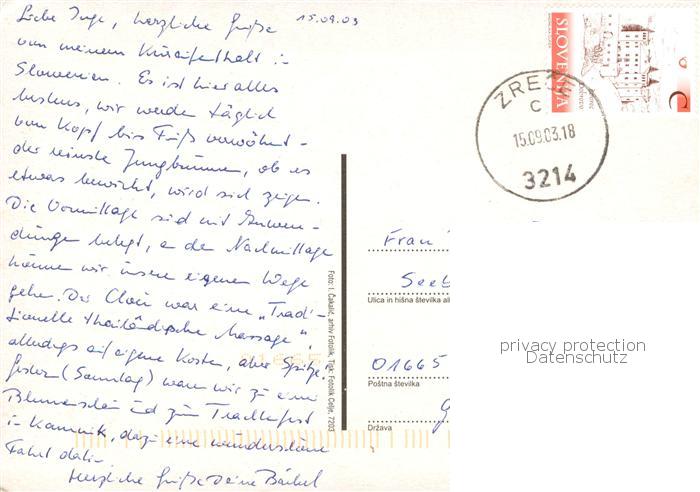 15.09.03
Liebe Inge, herzliche Grüße
von meinem Kuraufenthalt in
Slowenien. Es ist hier alles
bestens, wir werden täglich
von Kopf bis Fuß verwöhnt -
der reinste Jungbrunnen, ob es
etwas bewirkt, wird sich zeigen.
Die Vormittage sind mit Anwen-
dungen belegt, an den Nachmittagen
können wir unsere eigenen Wege
gehen. Der Clou war eine „Tradi-
tionelle thailändische Massage",
allerdings auf eigene Kosten, aber Spitze!
Gestern (Sonntag) waren wir zu einer
Blumenschau und zum Trachtenfest
in Kamnik, dazu eine wunderschöne
Fahrt dahin.
Herzliche Grüße Deine Bärbel
Foto: I. Čakalić, arhiv Fotolik, Tisk: Fotolik Celje, 7203
SLOVENIJA
C
ZREČE
C
15.09.03.18
3214
Frau
Seeb
Ulica in hišna številka ali
01665
Poštna številka
Država
01665
privacy protection
Datenschutz